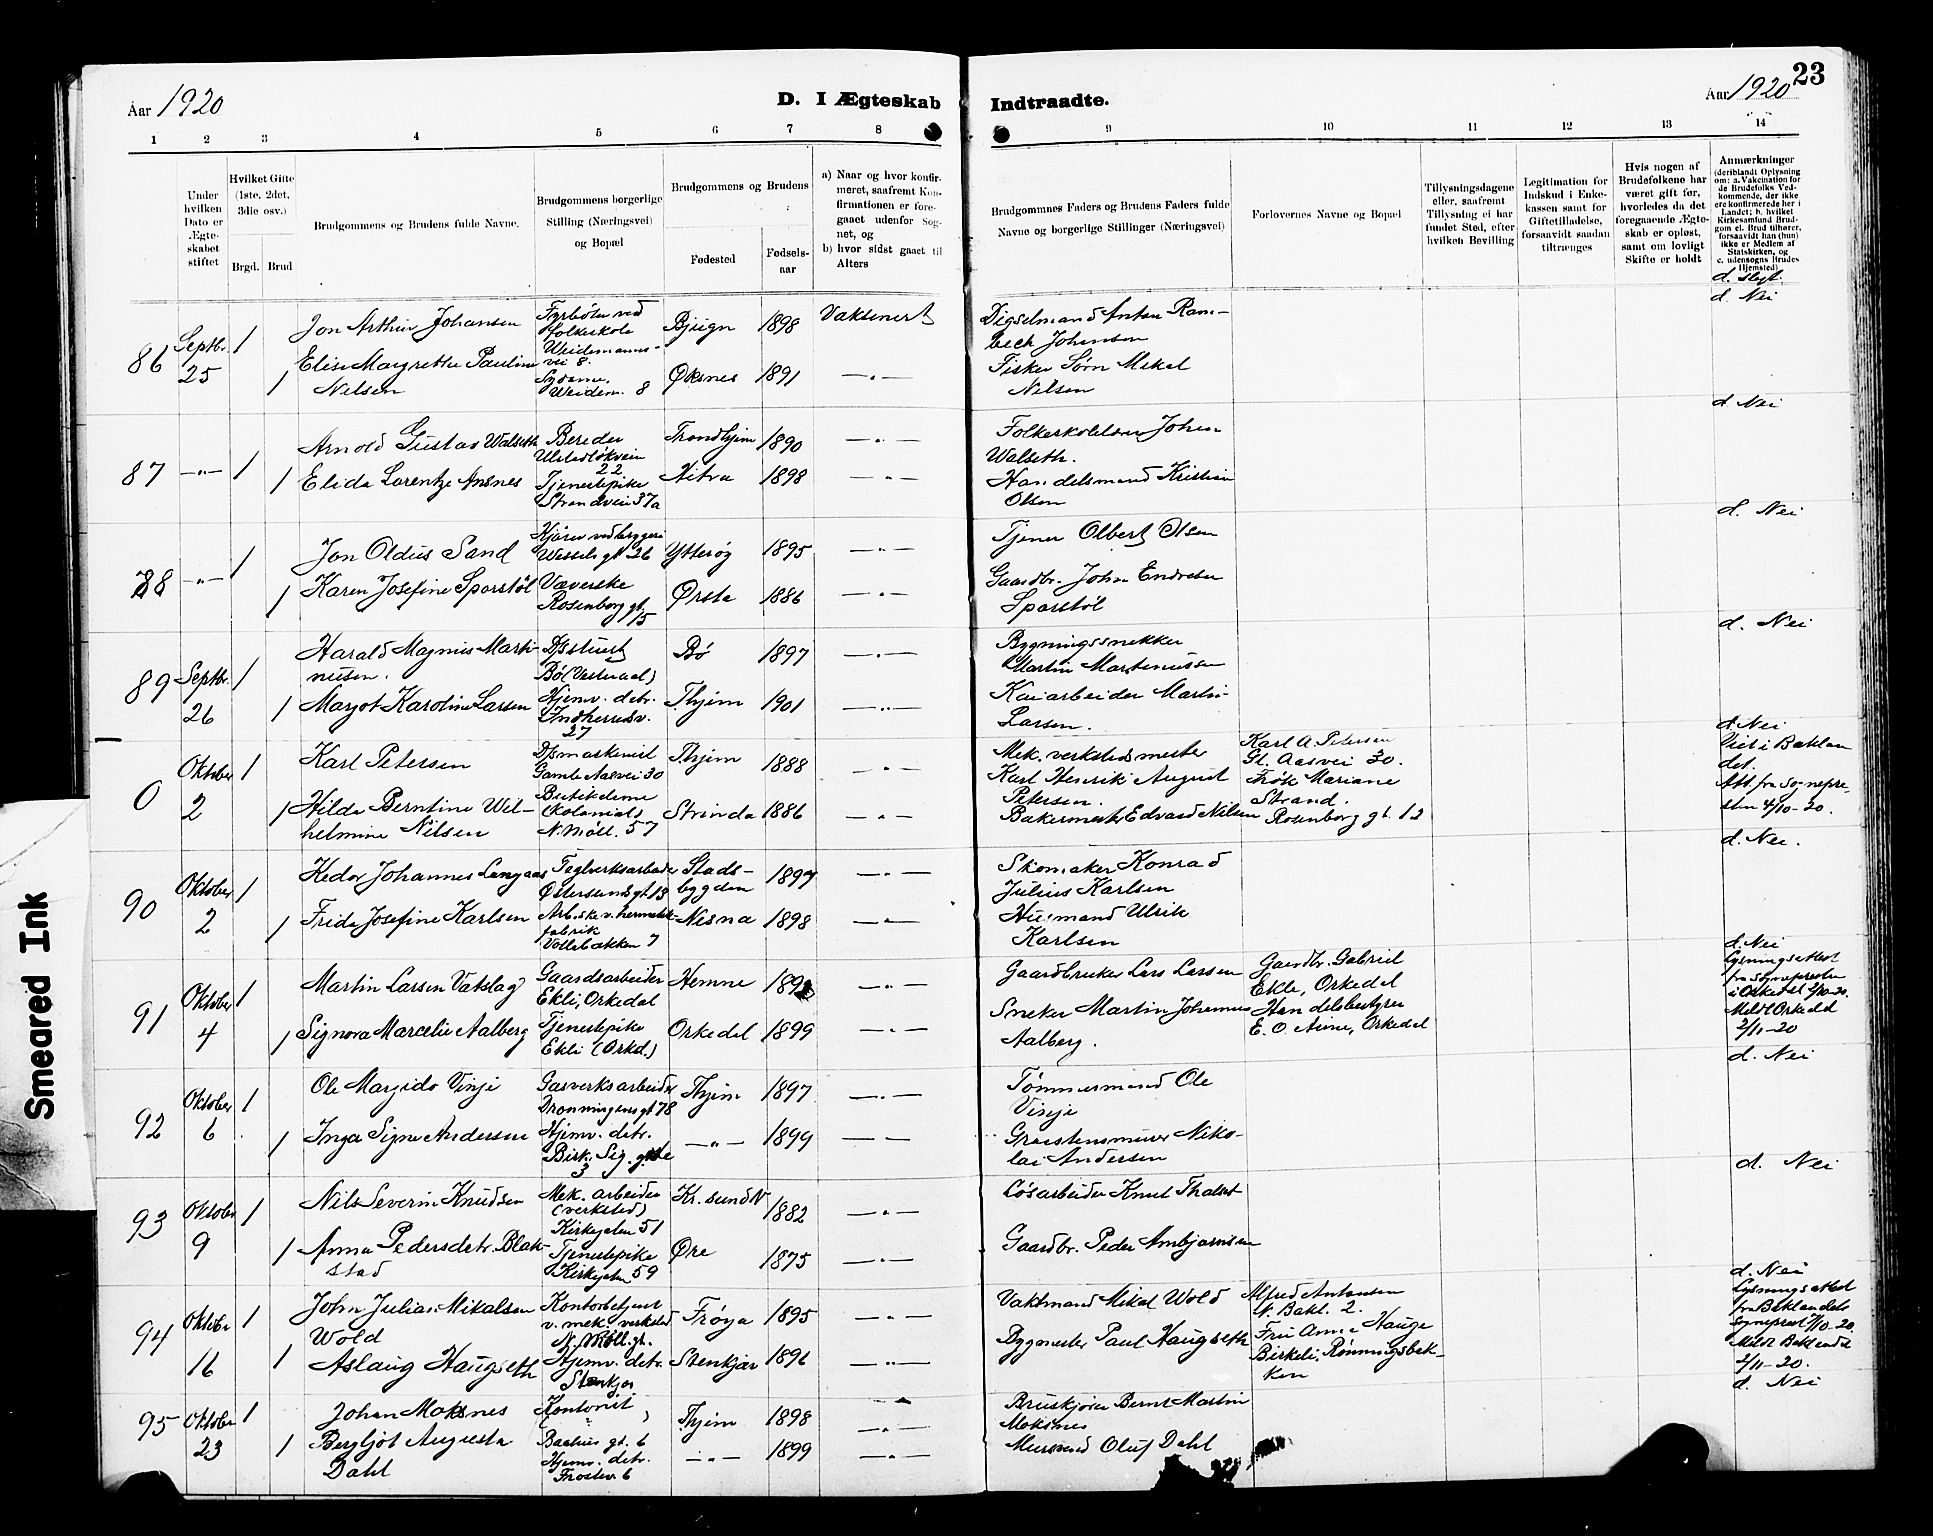 23
Aar 1920
D. I Ægteskab Indtraadte.
Aar 1920
1 2 3 4 5 6 7 8 9 10 11 12 13 14
Under hvilken Dato er Ægteskabet stiftet
Hvilket Gifte (1ste, 2det, 3die osv.)
Brgd. Brud
Brudgommens og Brudens fulde Navne.
Brudgommens borgerlige Stilling (Næringsvei) og Bopæl
Brudgommens og Brudens
Fødested
Fødselsaar
a) Naar og hvor konfirmeret, saafremt Konfirmationen er foregaaet udenfor Sognet, og
b) hvor sidst gaaet til Alters
Brudgommnes Faders og Brudens Faders fulde Navne og borgerlige Stillinger (Næringsvei)
Forlovernes Navne og Bopæl
Tillysningsdagene eller, saafremt Tillysning ei har fundet Sted, efter hvilken Bevilling
Legitimation for Indskud i Enkekassen samt for Giftetilladelse, forsaavidt saadan tiltrænges
Hvis nogen af Brudefolkene har været gift før, hvorledes da det foregaaende Ægteskab er opløst, samt om lovligt Skifte er holdt
Anmærkninger (deriblandt Oplysning om: a. Vakcination for de Brudefolks Vedkommende, der ikke ere konfirmerede her i Landet; b. hvilket Kirkesamfund Brudgom el. Brud tilhører, forsaavidt han (hun) ikke er Medlem af Statskirken, og c. udensogns Brudes Hjemsted)
d. slegt.
86 Septbr. 25 1 Jon Arthur Johansen Fyrbøter ved Folkeskole Weidemannsvei 8. Bjugn 1898 Vaksinert
d. Nei
1 Elise Margrethe Pauline Nilsen Syerske Weidem. 8 Øksnes 1891 — " —
Fisker Sørn Mikal Nilsen
87 — " — 1 Arnold Gustav Walseth Bereder 22 Trondhjem 1890 — " —
Walseth.
d. Nei
1 Elida Lorentze Ansnes Tjenestepike Strandvein 37a Hitra 1898
Handelsmand Kristian Olsen
88 — " — 1 Jon Oldus Sand Kjører ved bryggeri Wessels gt 26 Ytterøy 1895 — " —
Tjener Olbert Olsen
d. Nei
1 Karen Josefine Sporstøl Væverske Rosenborg gt. 15 Ørsta 1886 — " —
Gaardbr. John Endresen Sporstøl
89 Septbr. 26 1 Harald Magnus Martinusen. Bø (Vesteraal) Bø 1897 — " —
Bygningssnekker Martin Martinussen
d. Nei
1 Margot Karoline Larsen Hjemv. datr. Indherredsv. 27 Thjem 1901 — " —
Kaiarbeider Martin Larsen.
0 Oktober 2 1 Karl Petersen Dpsmaskinist Gamle Aasvei 30 Thjem 1888 — " —
Mek. verkstedsmester Karl Henrik August Petersen.
Karl A. Petersen Gl. Aasvei 30.
d. Nei
Viet i Baklandet.
Att. fra Sognepresten 4/10-20.
1 Hilda Berntine Wilhelmine Nilsen Butikdame (Kolonial) N. Møll. 57 Strinda 1886 — " —
Bakermester Edvard Nilsen
Frøk Mariane Strand. Rosenborg gt. 12
90 Oktober 2 1 Hedor Johannes Langaas Teglverksarbeider Østersunds gt. 13 Stadsbygden 1897 — " —
Skomaker Konrad Julius Karlsen
d. Nei.
1 Frida Josefine Karlsen Arb.ske v. hermetikfabrik Vollabakken 7 Nesna 1898 — " —
Husmand Ulrik Karlsen
91 Oktober 4 1 Martin Larsen Vatslag Gaardsarbeider Ekli, Orkedal Hemne — " —
Gaardbruker Lars Larsen
Gaardbr. Gabriel Ekle, Orkedal
d. Nei
Lysningsattest fra Sognepresten i Orkedal 2/10-20.
Meldt Orkedal 2/11-20
1 Signora Marcelie Aalberg Tjenestepike Ekli (Orkd.) Orkedal 1899 — " —
Sneker Martin Johannes Aalberg.
Handelsbestyrer E. O. Aune, Orkedal
92 Oktober 6 1 Ole Margido Vinje Gasverksarbeider Dronningensgt 78 Thjem 1897 — " —
Tømmermand Ole Vinje
d. Nei
1 Inga Signe Andersen Hjemv. datr. 3 — " — 1899 — " —
Graastensmurer Nikolai Andersen
93 Oktober 9 1 Nils Severin Knudsen Mek. arbeider (verksted) Kirkegaten 51 Kr. sund N 1882 — " —
Løsarbeider Knut
d. Nei
1 Anna Pedersdatr. Blakstad Tjenestepike Kirkegaten 59 Øre 1875 — " —
Gaardbr. Peder Ambjørnsen
94 Oktober 16 1 John Julian Mikalsen Wold Kontorbetjent v. mek. verksted N. Møll. gt. Frøya 1895 — " —
Vaktmand Mikal Wold
Alfred Antonsen N. Bakl. 2.
d. Nei
Lysningsattest fra Baklandets Sogneprest
Meldt Baklandet 2/11-20.
1 Aslaug Haugseth Hjemv. datr. Stenkjær Stenkjær 1896 — " —
Bygmester Paul Haugseth
Fru Anna Hauge Birkeli, Rønningsbakken
95 Oktober 23 1 Johan Moksnes Kontorist Thjem 1898
Bruskjører Bernt Martin Moksnes
d. Nei
1 Bergljot Augusta Dahl Bakkes gt. 6 Hjemv. datr. Frostav. 6 — " — 1899 — " —
Murmand Oluf Dahl
Smeared Ink